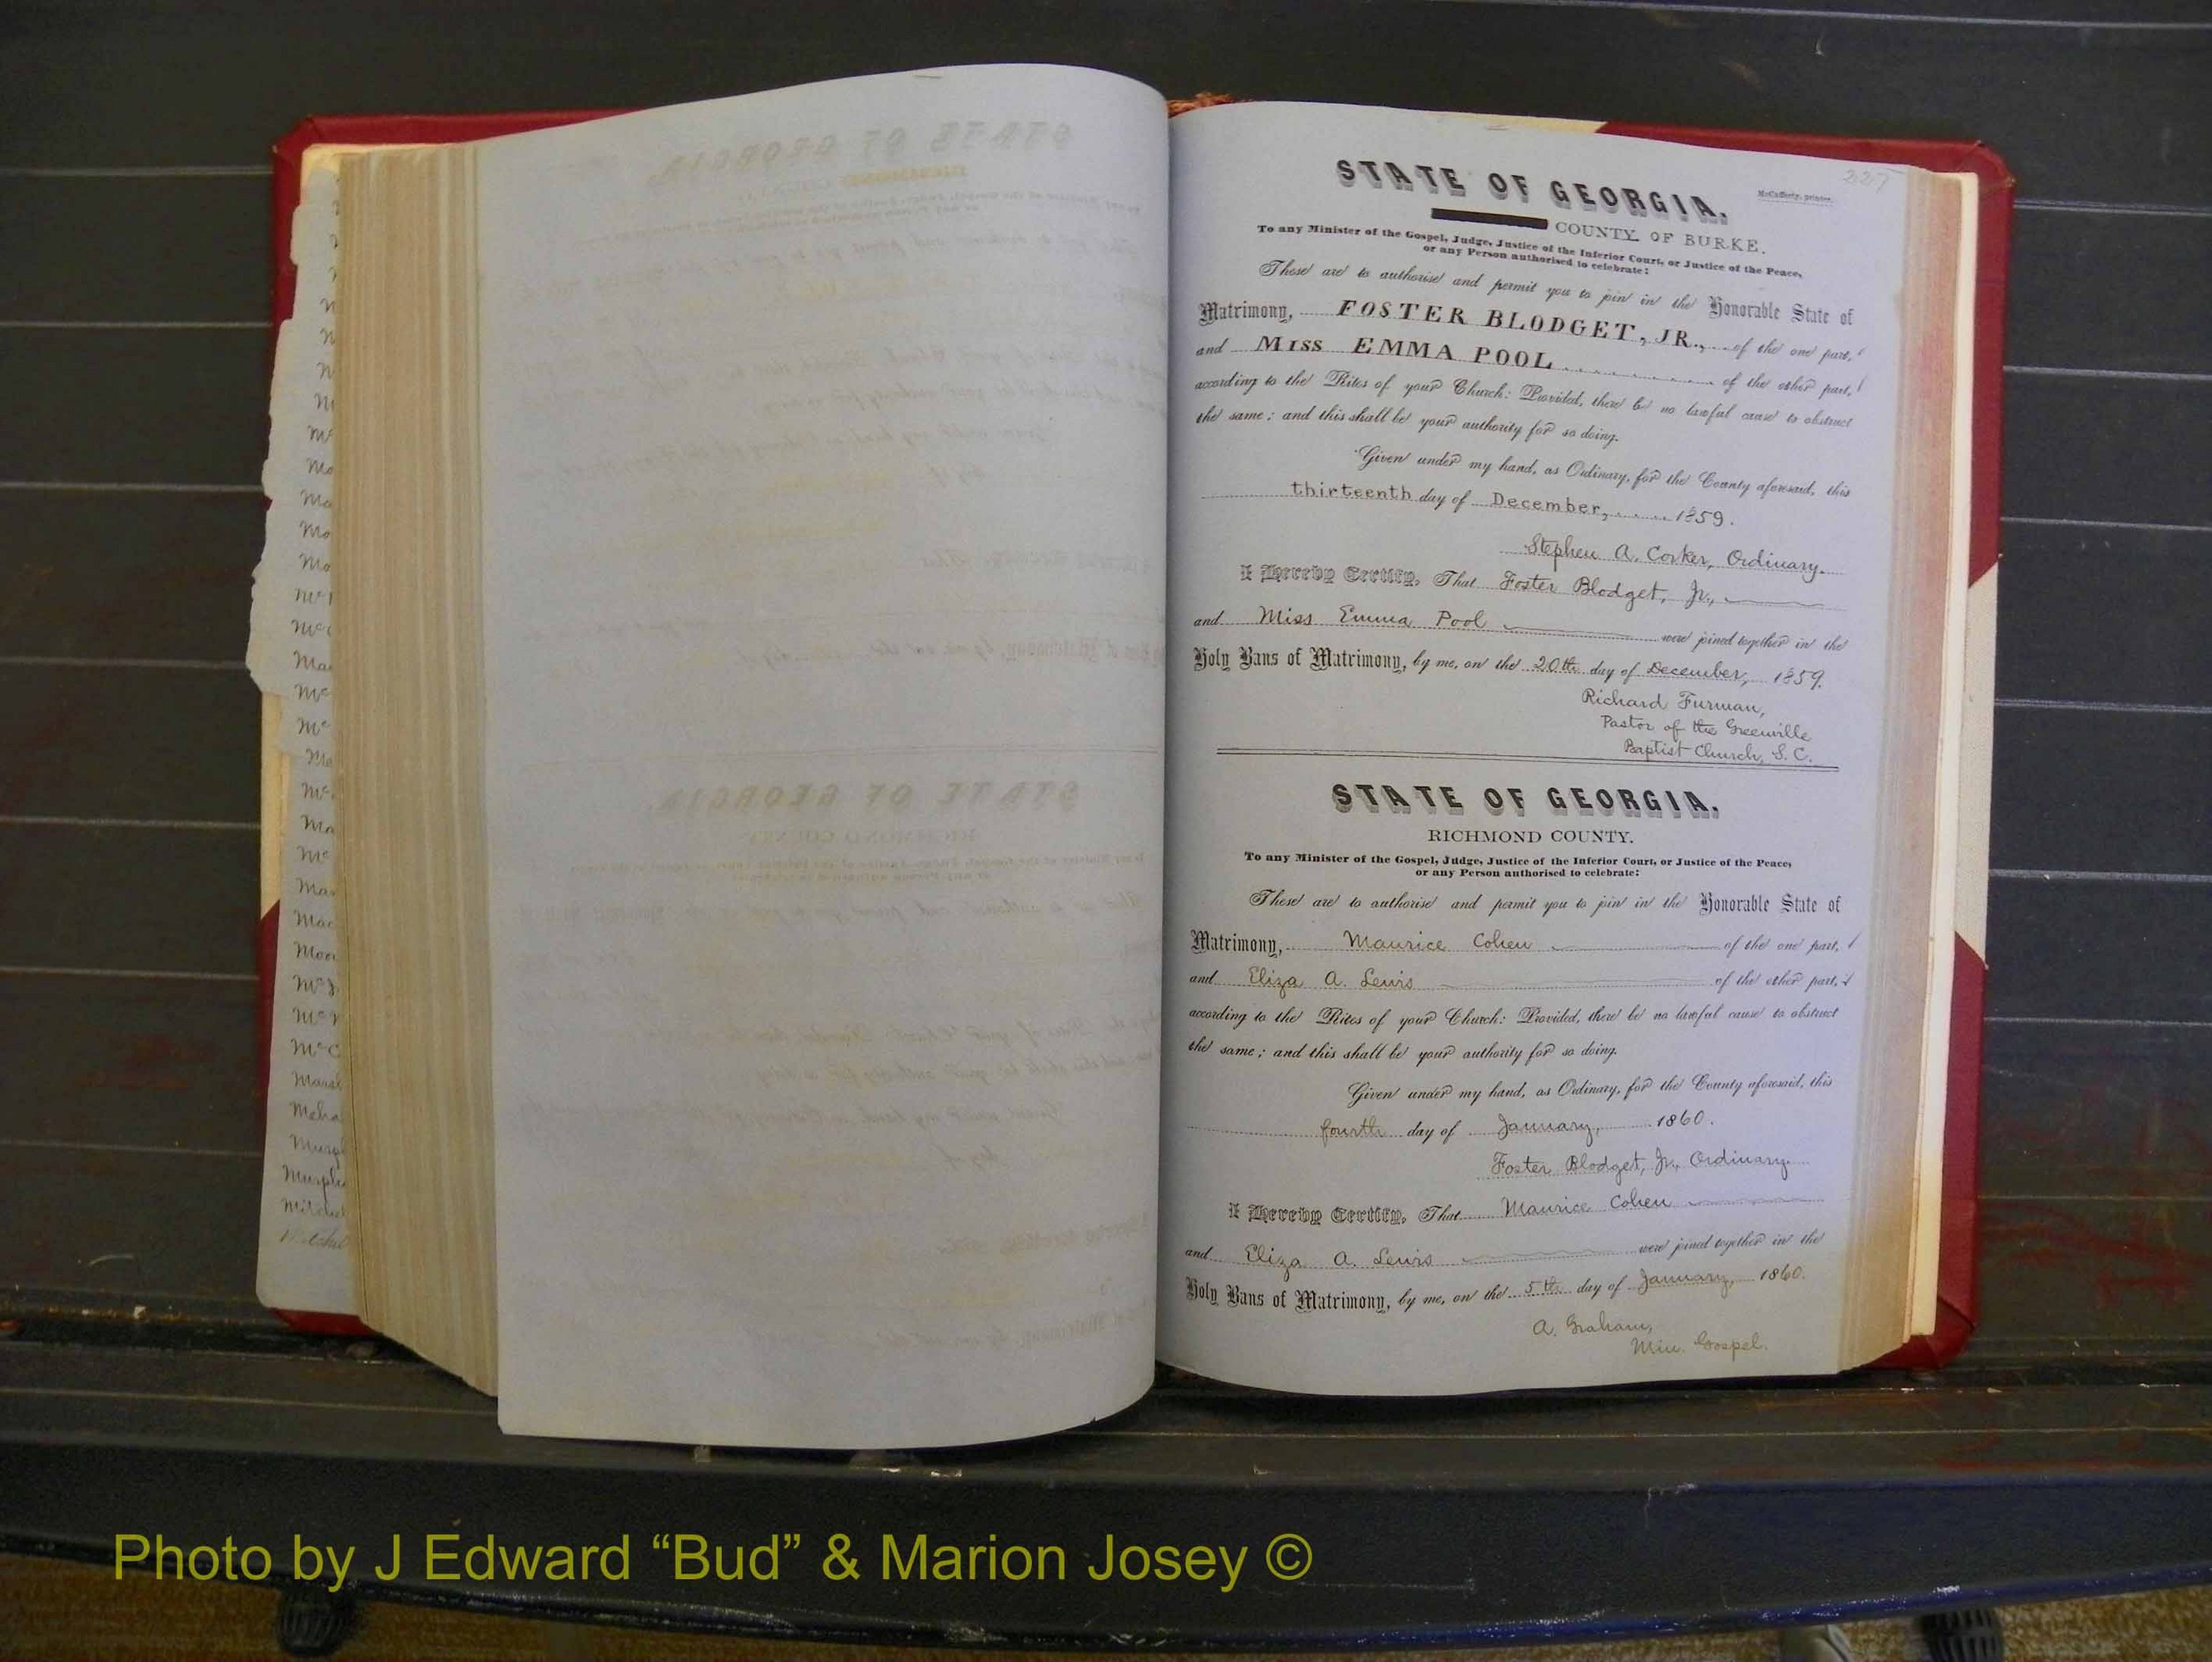 M
Mc
Mo
Ma
Mo
Mo
Mc
Mac
Moor
McC
Marsh
Meha
Murp
Murph
Mitchel
Mitchel
227
STATE OF GEORGIA.
McCafferty, printer.
COUNTY OF BURKE.
To any Minister of the Gospel, Judge, Justice of the Inferior Court, or Justice of the Peace,
or any Person authorised to celebrate:
These are to authorise and permit you to join in the Honorable State of
Matrimony, FOSTER BLODGET, JR., of the one part,
and MISS EMMA POOL of the other part,
according to the Rites of your Church: Provided, there be no lawful cause to obstruct
the same; and this shall be your authority for so doing.
Given under my hand, as Ordinary, for the County aforesaid, this
thirteenth day of December, 1859.
Stephen A. Corker, Ordinary.
I Hereby Certify, That Foster Blodget, Jr.,
and Miss Emma Pool were joined together in the
Holy Bans of Matrimony, by me, on the 20th day of December, 1859.
Richard Furman,
Pastor of the Greenville
Baptist Church, S. C.
STATE OF GEORGIA.
RICHMOND COUNTY.
To any Minister of the Gospel, Judge, Justice of the Inferior Court, or Justice of the Peace,
or any Person authorised to celebrate:
These are to authorise and permit you to join in the Honorable State of
Matrimony, Maurice Cohen of the one part,
and Eliza A. Lewis of the other part,
according to the Rites of your Church: Provided, there be no lawful cause to obstruct
the same; and this shall be your authority for so doing.
Given under my hand, as Ordinary, for the County aforesaid, this
fourth day of January, 1860.
Foster Blodget, Jr., Ordinary.
I Hereby Certify, That Maurice Cohen
and Eliza A. Lewis were joined together in the
Holy Bans of Matrimony, by me, on the 5th day of January, 1860.
A. Graham,
Min. Gospel.
Photo by J Edward “Bud” & Marion Josey ©